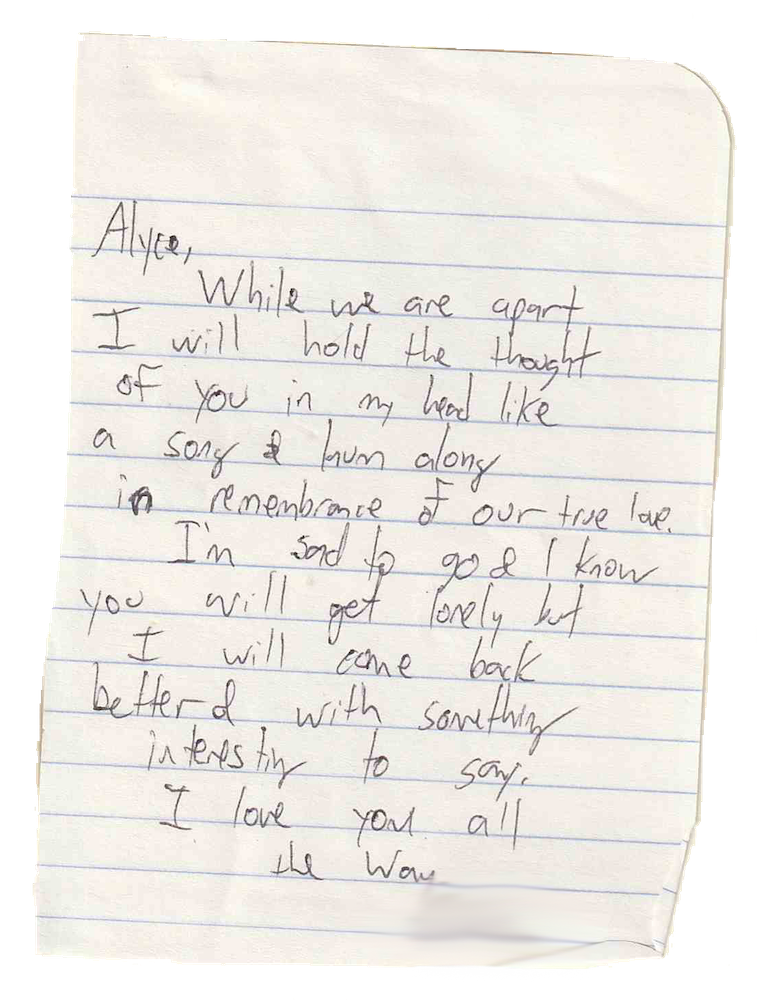 Alyce,
While we are apart
I will hold the thought
of you in my head like
a song & hum along
in remembrance of our true love.
I'm sad to go & I know
you will get lonely but
I will come back
better & with something
interesting to say.
I love you all
the way